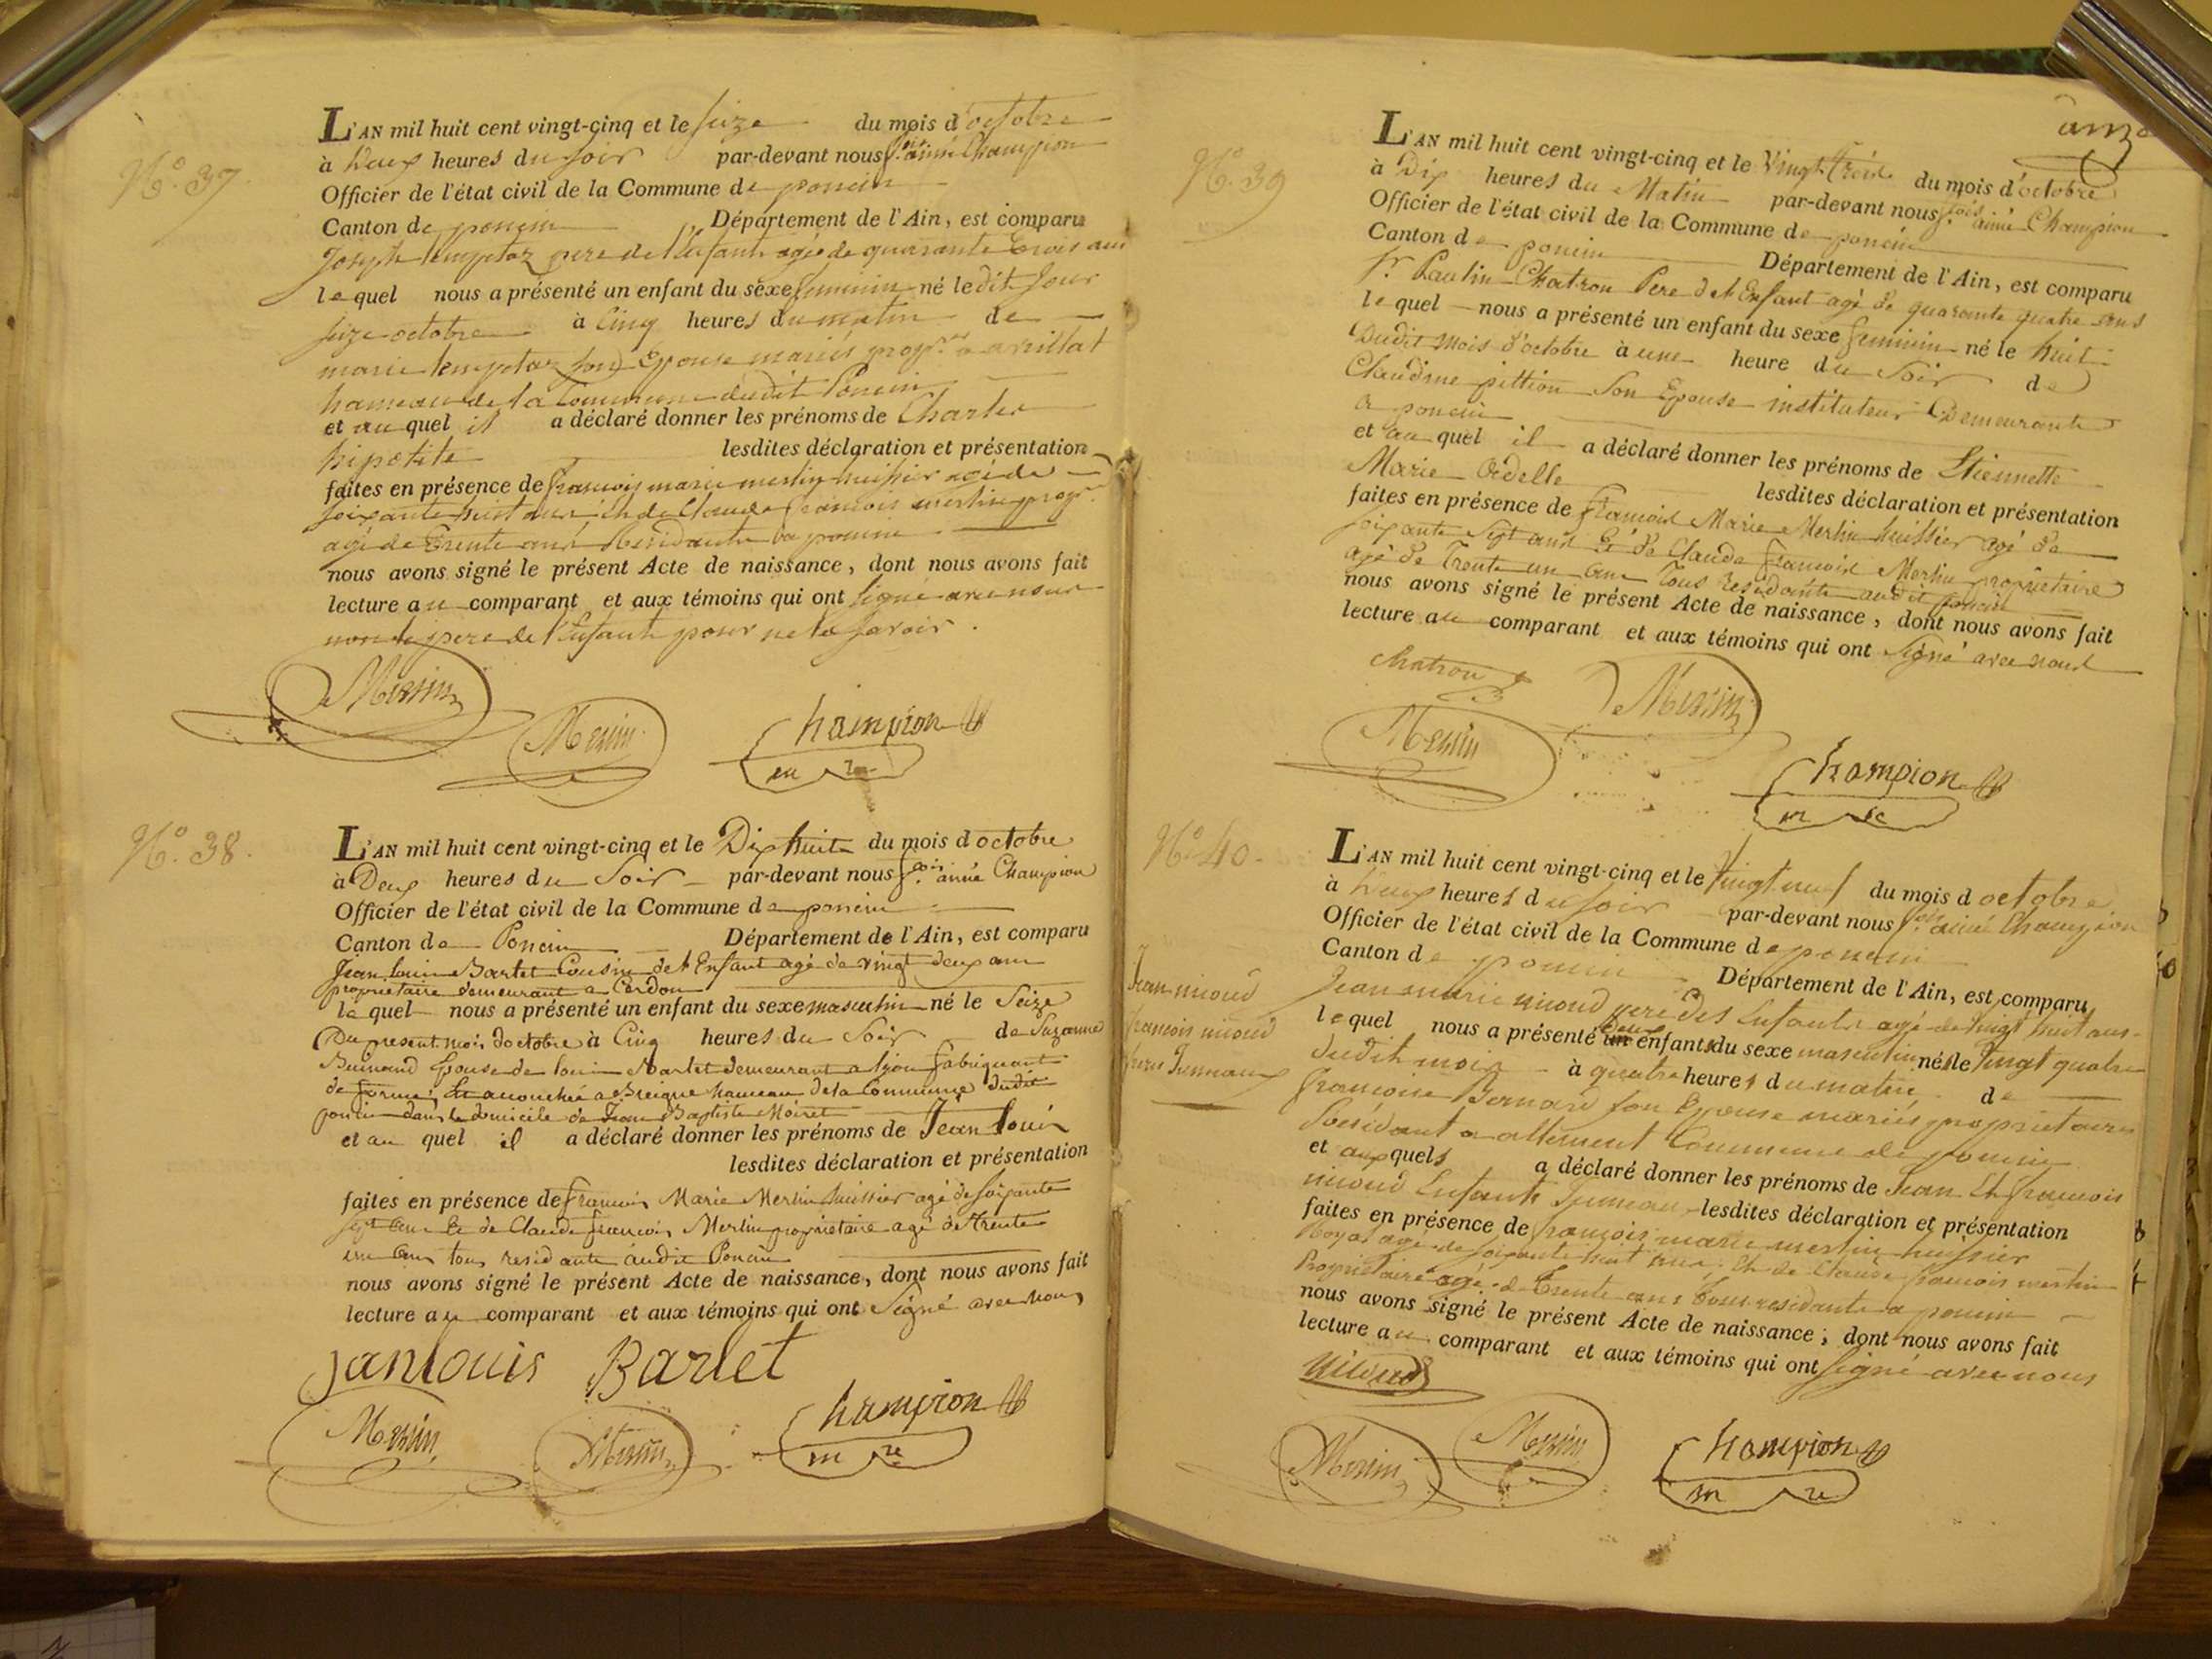 N.° 37.
L'AN mil huit cent vingt-cinq et le seize du mois d'octobre
à deux heures du soir par-devant nous f.ois aimé Champion
Officier de l'état civil de la Commune de poncin
Canton de poncin Département de l'Ain, est comparu
joseph temptoz pere de l'enfant agé de quarante trois ans
lequel nous a présenté un enfant du sexe feminin né ledit jour
seize octobre à cinq heures du matin de
marie temptoz son epouse mariés prop.res a avrillat
hameau de la commune dudit Poncin
et au quel il a déclaré donner les prénoms de Charles
hipotite lesdites déclaration et présentation
faites en présence de francois marie merlin huissier agé de
soixante huit ans et de Claude francois merlin prop.re
agé de trente ans residants a poncin
nous avons signé le présent Acte de naissance, dont nous avons fait
lecture au comparant et aux témoins qui ont signé avec nous
non le pere de l'enfant pour ne le savoir.
Merlin Merlin Champion
m re
N.° 38.
L'AN mil huit cent vingt-cinq et le Dix huit du mois d octobre
à Deux heures du Soir par-devant nous f.ois aimé Champion
Officier de l'état civil de la Commune de poncin
Canton de Poncin Département de l'Ain, est comparu
Jean Louis Bartet Cousin de l'Enfant agé de vingt deux ans
proprietaire demeurant a Cerdon
lequel nous a présenté un enfant du sexe masculin né le Seize
Du present mois d'octobre à Cinq heures du Soir de Suzanne
Epouse de Louis Bartet demeurant a lyon fabriquant
de accouchée a Breigne hameau de la Commune dudit
poncin dans le domicile de Jean Baptiste Moiret
et au quel il a déclaré donner les prénoms de Jean Louis
lesdites déclaration et présentation
faites en présence de francois Marie Merlin huissier agé de soixante
sept ans Et de Claude francois Merlin proprietaire agé de trente
un ans tous residants audit Poncin
nous avons signé le présent Acte de naissance, dont nous avons fait
lecture au comparant et aux témoins qui ont Signé avec nous
janlouis Barlet
Merlin Merlin Champion
m re
N.° 39
L'AN mil huit cent vingt-cinq et le Vingt trois du mois d'octobre
à Dix heures du Matin par-devant nous f.ois aimé Champion
Officier de l'état civil de la Commune de poncin
Canton de poncin Département de l'Ain, est comparu
S.r Paulin Chatron Pere de l'Enfant agé de quarante quatre ans
lequel nous a présenté un enfant du sexe feminin né le huit
Dudit mois d'octobre à une heure du Soir de
Claudine pittion Son Epouse instituteur Demeurants
a poncin
et au quel il a déclaré donner les prénoms de Etiennette
Marie Odelle lesdites déclaration et présentation
faites en présence de francois Marie Merlin huissier agé de
soixante Sept ans Et de Claude francois Merlin proprietaire
agé de Trente un ans Tous residants audit poncin
nous avons signé le présent Acte de naissance, dont nous avons fait
lecture au comparant et aux témoins qui ont Signé avec nous
chatron Merlin
Merlin Champion
m re
N.° 40.
Jean nicoud
francois nicoud
freres Jumeaux
L'AN mil huit cent vingt-cinq et le vingt neuf du mois d octobre
à deux heures du soir par-devant nous f.ois aimé Champion
Officier de l'état civil de la Commune de poncin
Canton de poncin Département de l'Ain, est comparu
Jean marie nicoud pere des Enfants agé de vingt huit ans
lequel nous a présenté un deux enfants du sexe masculin né le vingt quatre
dudit mois à quatre heures du matin de
francoise Bernard son Epouse mariés proprietaires
Residant a allement Commune de poncin
et aux quels a déclaré donner les prénoms de Jean Et francois
nicoud Enfants Jumeau lesdites déclaration et présentation
faites en présence de francois marie merlin huissier
Royal agé de soixante huit ans Et de Claude francois merlin
Proprietaire agé de trente ans tous residants a poncin
nous avons signé le présent Acte de naissance, dont nous avons fait
lecture au comparant et aux témoins qui ont signé avec nous
Nicoud
Merlin Merlin Champion
m re